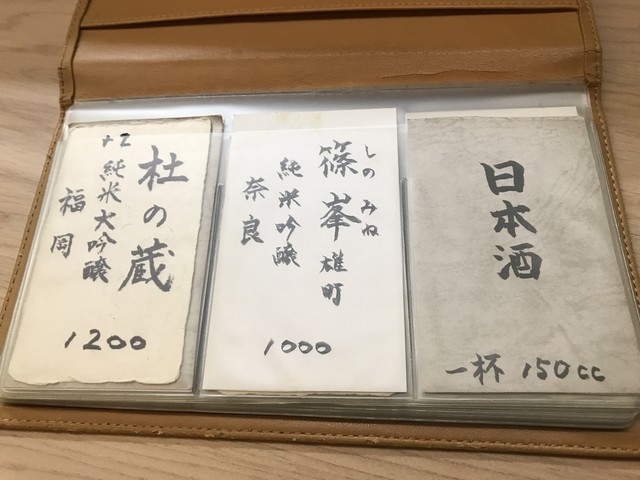 日本酒
一杯 150cc
しのみね
篠峯 雄町
純米吟醸
奈良
1000
杜の蔵
+2
純米大吟醸
福岡
1200